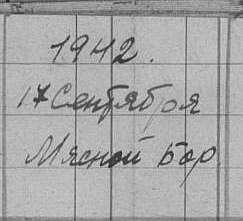 1942.
17 Сентября
Мясной Бор